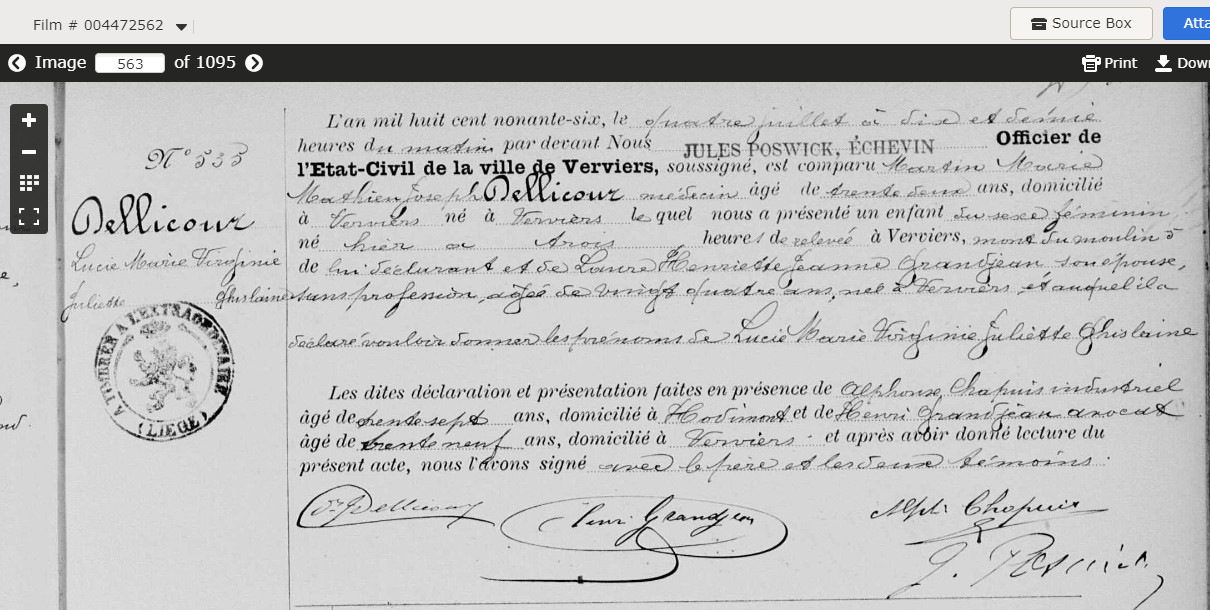 Film # 004472562
Source Box
Atta
Image 563 of 1095
Print
Down
L'an mil huit cent nonante-six, le quatre juillet à dix et demie
heures du matin par devant Nous JULES POSWICK, ÉCHEVIN Officier de
l'Etat-Civil de la ville de Verviers, soussigné, est comparu Martin Marie
Mathieu Joseph Dellicour médecin âgé de trente deux ans, domicilié
à Verviers né à Verviers lequel nous a présenté un enfant du sexe féminin,
né hier à trois heures de relevée à Verviers, mont du moulin 5
de lui déclarant et de Laure Henriette Jeanne Grandjean son épouse,
sans profession, agée de vingt quatre ans, née à Verviers, et auquel il a
déclaré vouloir donner les prénoms de Lucie Marie Virginie Juliette Ghislaine
Les dites déclaration et présentation faites en présence de Alphonse Chapuis industriel
âgé de trente sept ans, domicilié à Hodimont et de Henri Grandjean avocat
âgé de trente neuf ans, domicilié à Verviers et après avoir donné lecture du
présent acte, nous l'avons signé avec le père et les deux témoins.
N° 533
Dellicour
Lucie Marie Virginie
Juliette Ghislaine
A TIMBRER A L'EXTRAORDINAIRE
(LIEGE)
Dellicour
Henri Grandjean
Alph. Chapuis